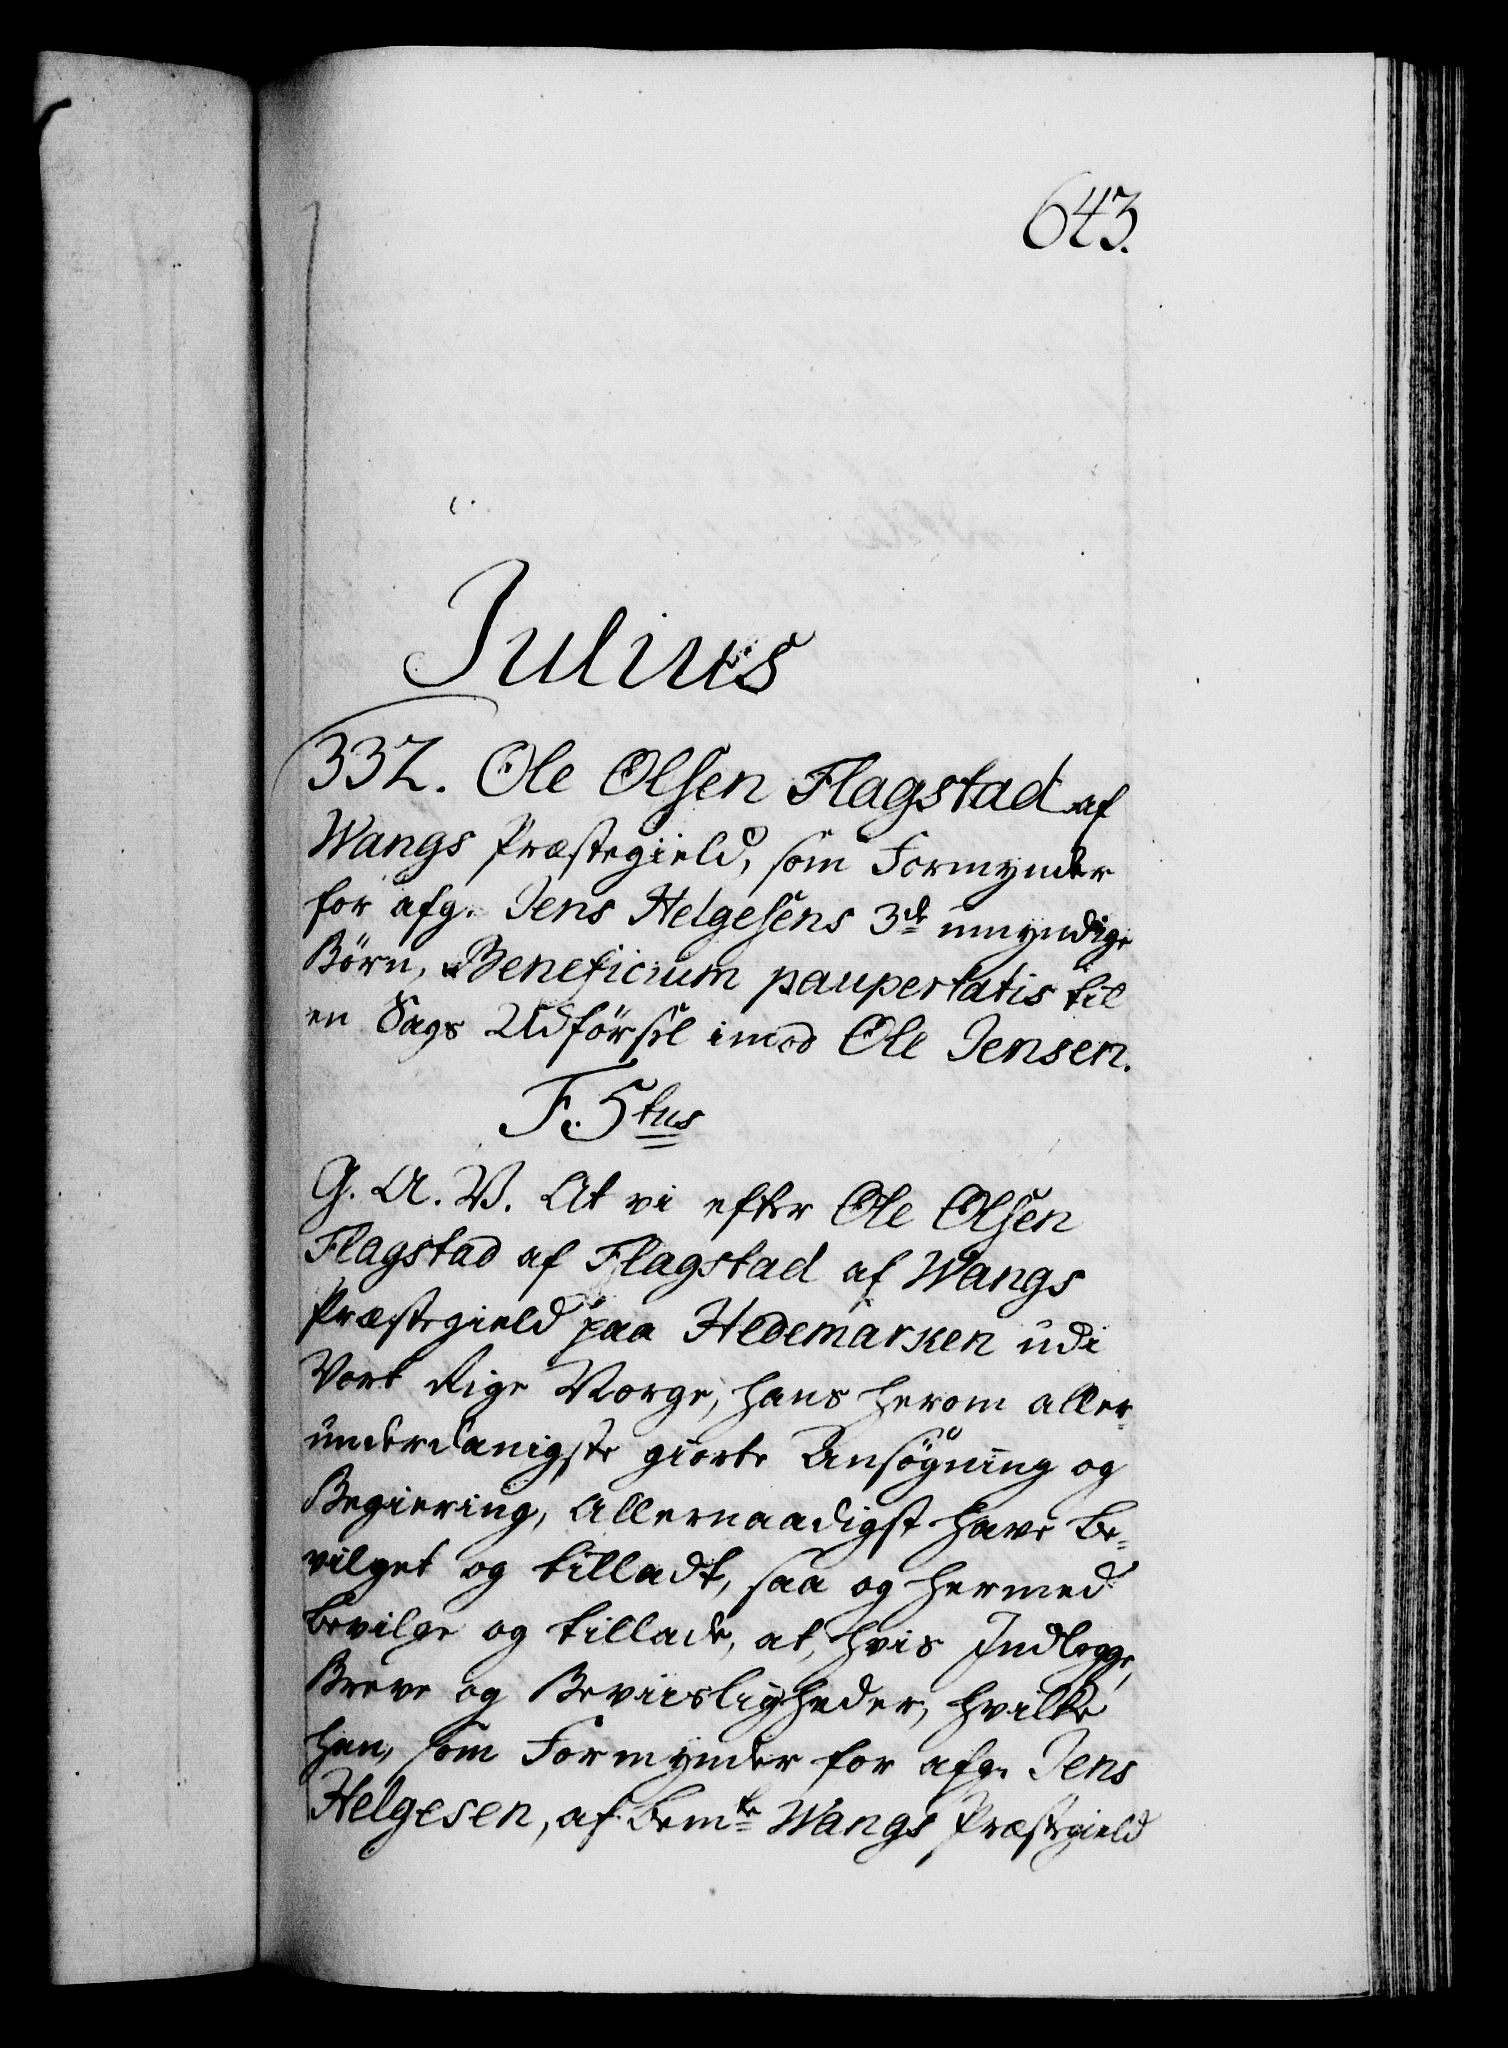 643.
Julius
332. Ole Olsen Flagstad af
Wangs Præstegield, som Formynder
for afg. Jens Helgesens 3de umyndige
Børn, Beneficium paupertatis til
en Sags Udførsel imod Ole Jensen.
F. 5tus
G. A. V. At vi efter Ole Olsen
Flagstad af Flagstad af Wangs
Præstegield paa Hedemarken udi
Vort Rige Norge, hans herom aller-
underdanigste giorte Ansøgning og
Begiering, allernaadigst have be-
vilget og tilladt, saa og hermed
bevilge og tillade, at, hvis Indlegge,
Breve og Beviisligheder, hvilke
han, som Formynder for afg. Jens
Helgesen, af bemte Wangs Præstegield